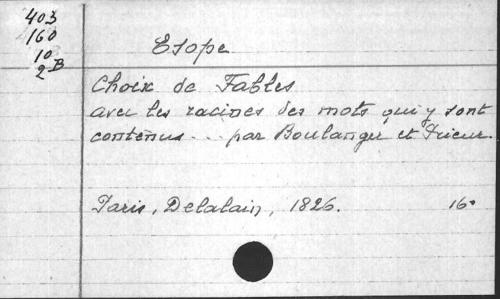 403
160
10
2B
Esope
Choix de Fables
avec les racines des mots qui y sont
contenus... par Boulanger et Prieur.
Paris, Delalain, 1826. 16°